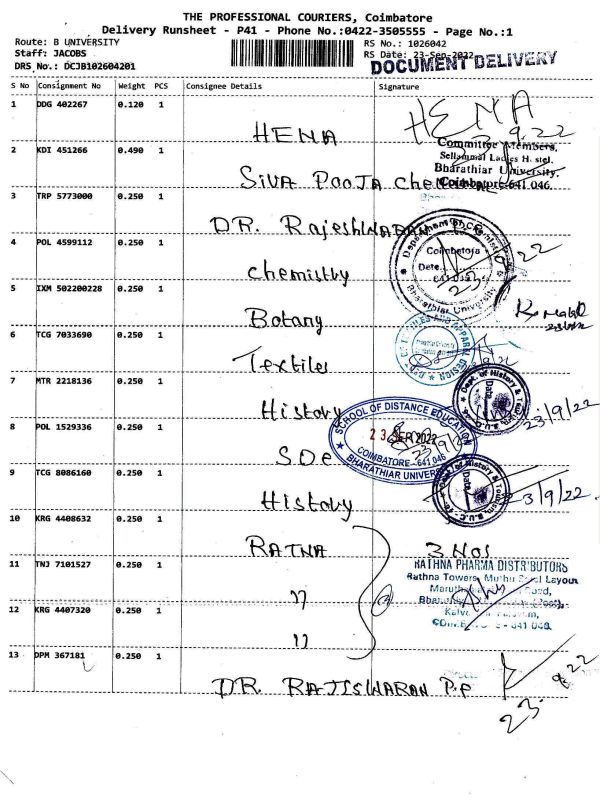 THE PROFESSIONAL COURIERS, Coimbatore
Delivery Runsheet - P41 - Phone No.:0422-3505555 - Page No.:1
Route: B UNIVERSITY
RS No.: 1026042
Staff: JACOBS
RS Date: 23-Sep-2022
DRS No.: DCJB102604201
DOCUMENT DELIVERY
S No Consignment No Weight PCS Consignee Details Signature
1 DDG 402267 0.120 1
HENA
HEMA
23.9.22
2 KDI 451266 0.490 1
Siva Pooja
Committee Members,
Sellammal Ladies H. stel.
Bharathiar University.
Coimbatore-641 046.
3 TRP 5773000 0.250 1
DR. Rajeshwaran
4 POL 4599112 0.250 1
Chemistry
Coimbatore
Date
Bharathiar University
5 IXM 502200228 0.250 1
Botany
6 TCG 7033690 0.250 1
Textiles
7 MTR 2218136 0.250 1
History
Dept. of History &
Date
23/9/22
8 POL 1529336 0.250 1
SDE
SCHOOL OF DISTANCE EDUCATION
23 SEP 2022
COIMBATORE - 641 046
BHARATHIAR UNIVERSITY
9 TCG 8086160 0.250 1
History
Date
23/9/22
10 KRG 4408632 0.250 1
RATNA
3 Nos
11 TNJ 7101527 0.250 1
"
RATHNA PHARMA DISTRIBUTORS
Rathna Towers,
12 KRG 4407320 0.250 1
"
13 DPM 367181 0.250 1
DR. RAJISWARAN P.P
23.9.22